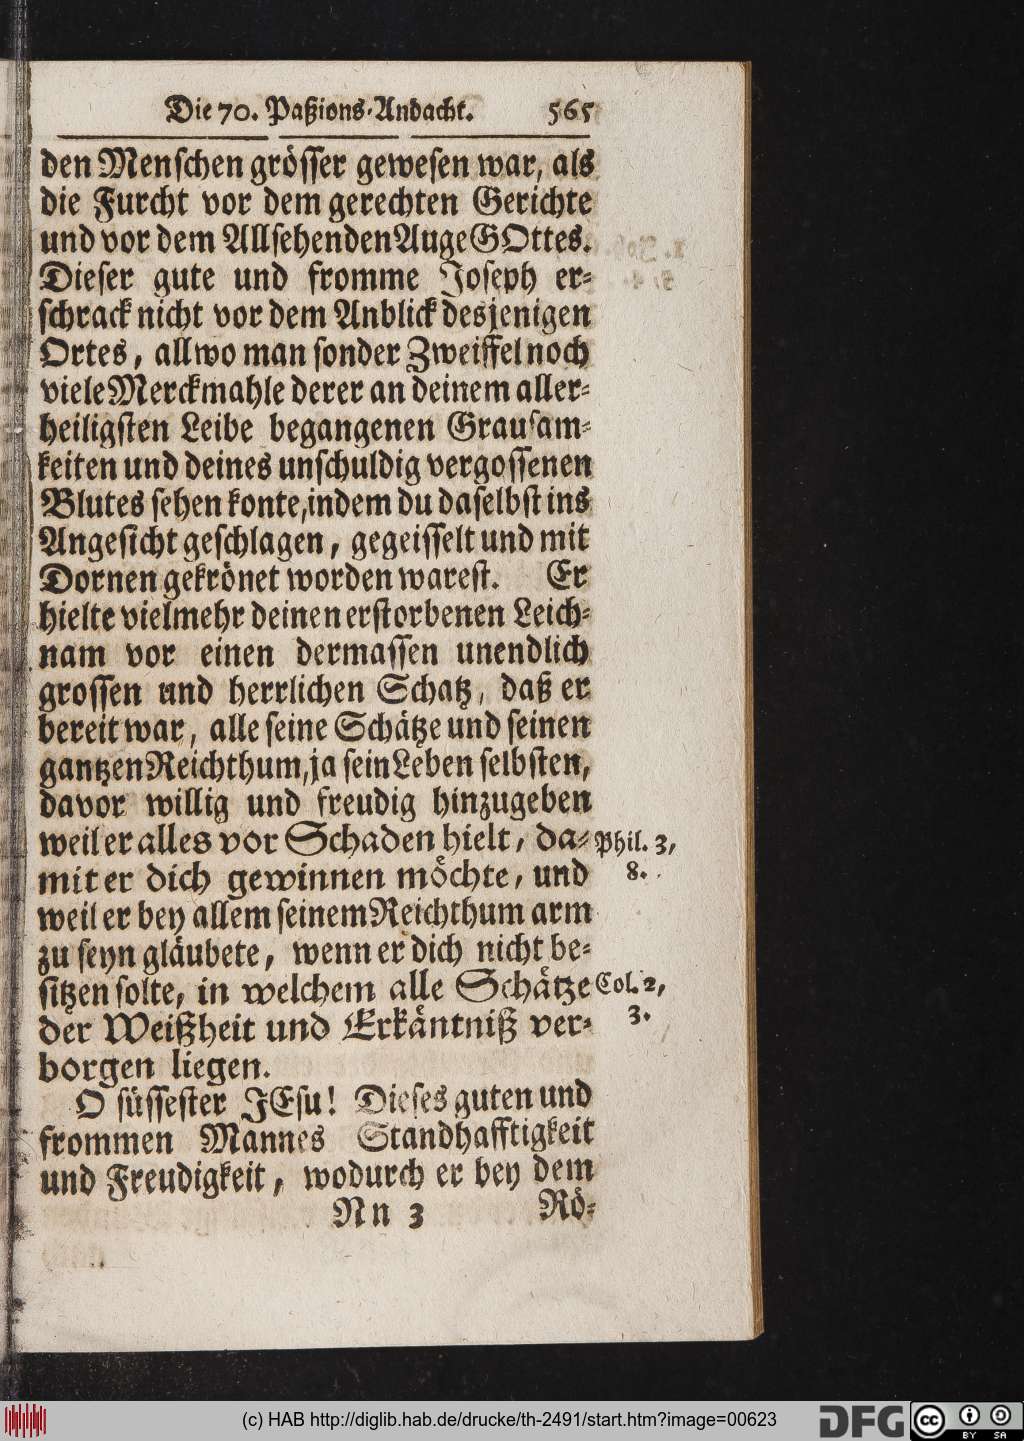 Die 70. Paßions-Andacht. 565
den Menschen grösser gewesen war, als
die Furcht vor dem gerechten Gerichte
und vor dem Allsehenden Auge GOttes.
Dieser gute und fromme Joseph er-
schrack nicht vor dem Anblick desjenigen
Ortes, allwo man sonder Zweiffel noch
viele Merckmahle derer an deinem aller-
heiligsten Leibe begangenen Grausam-
keiten und deines unschuldig vergossenen
Blutes sehen konte, indem du daselbst ins
Angesicht geschlagen, gegeisselt und mit
Dornen gekrönet worden warest. Er
hielte vielmehr deinen erstorbenen Leich-
nam vor einen dermassen unendlich
grossen und herrlichen Schatz, daß er
bereit war, alle seine Schätze und seinen
gantzen Reichthum, ja sein Leben selbsten,
davor willig und freudig hinzugeben
weil er alles vor Schaden hielt, da- Phil. 3,
mit er dich gewinnen möchte, und 8.
weil er bey allem seinem Reichthum arm
zu seyn gläubete, wenn er dich nicht be-
sitzen solte, in welchem alle Schätze Col. 2,
der Weißheit und Erkäntniß ver- 3.
borgen liegen.
O süssester JEsu! Dieses guten und
frommen Mannes Standhafftigkeit
und Freudigkeit, wodurch er bey dem
Nn 3 Rö-
(c) HAB http://diglib.hab.de/drucke/th-2491/start.htm?image=00623
DFG cc BY SA